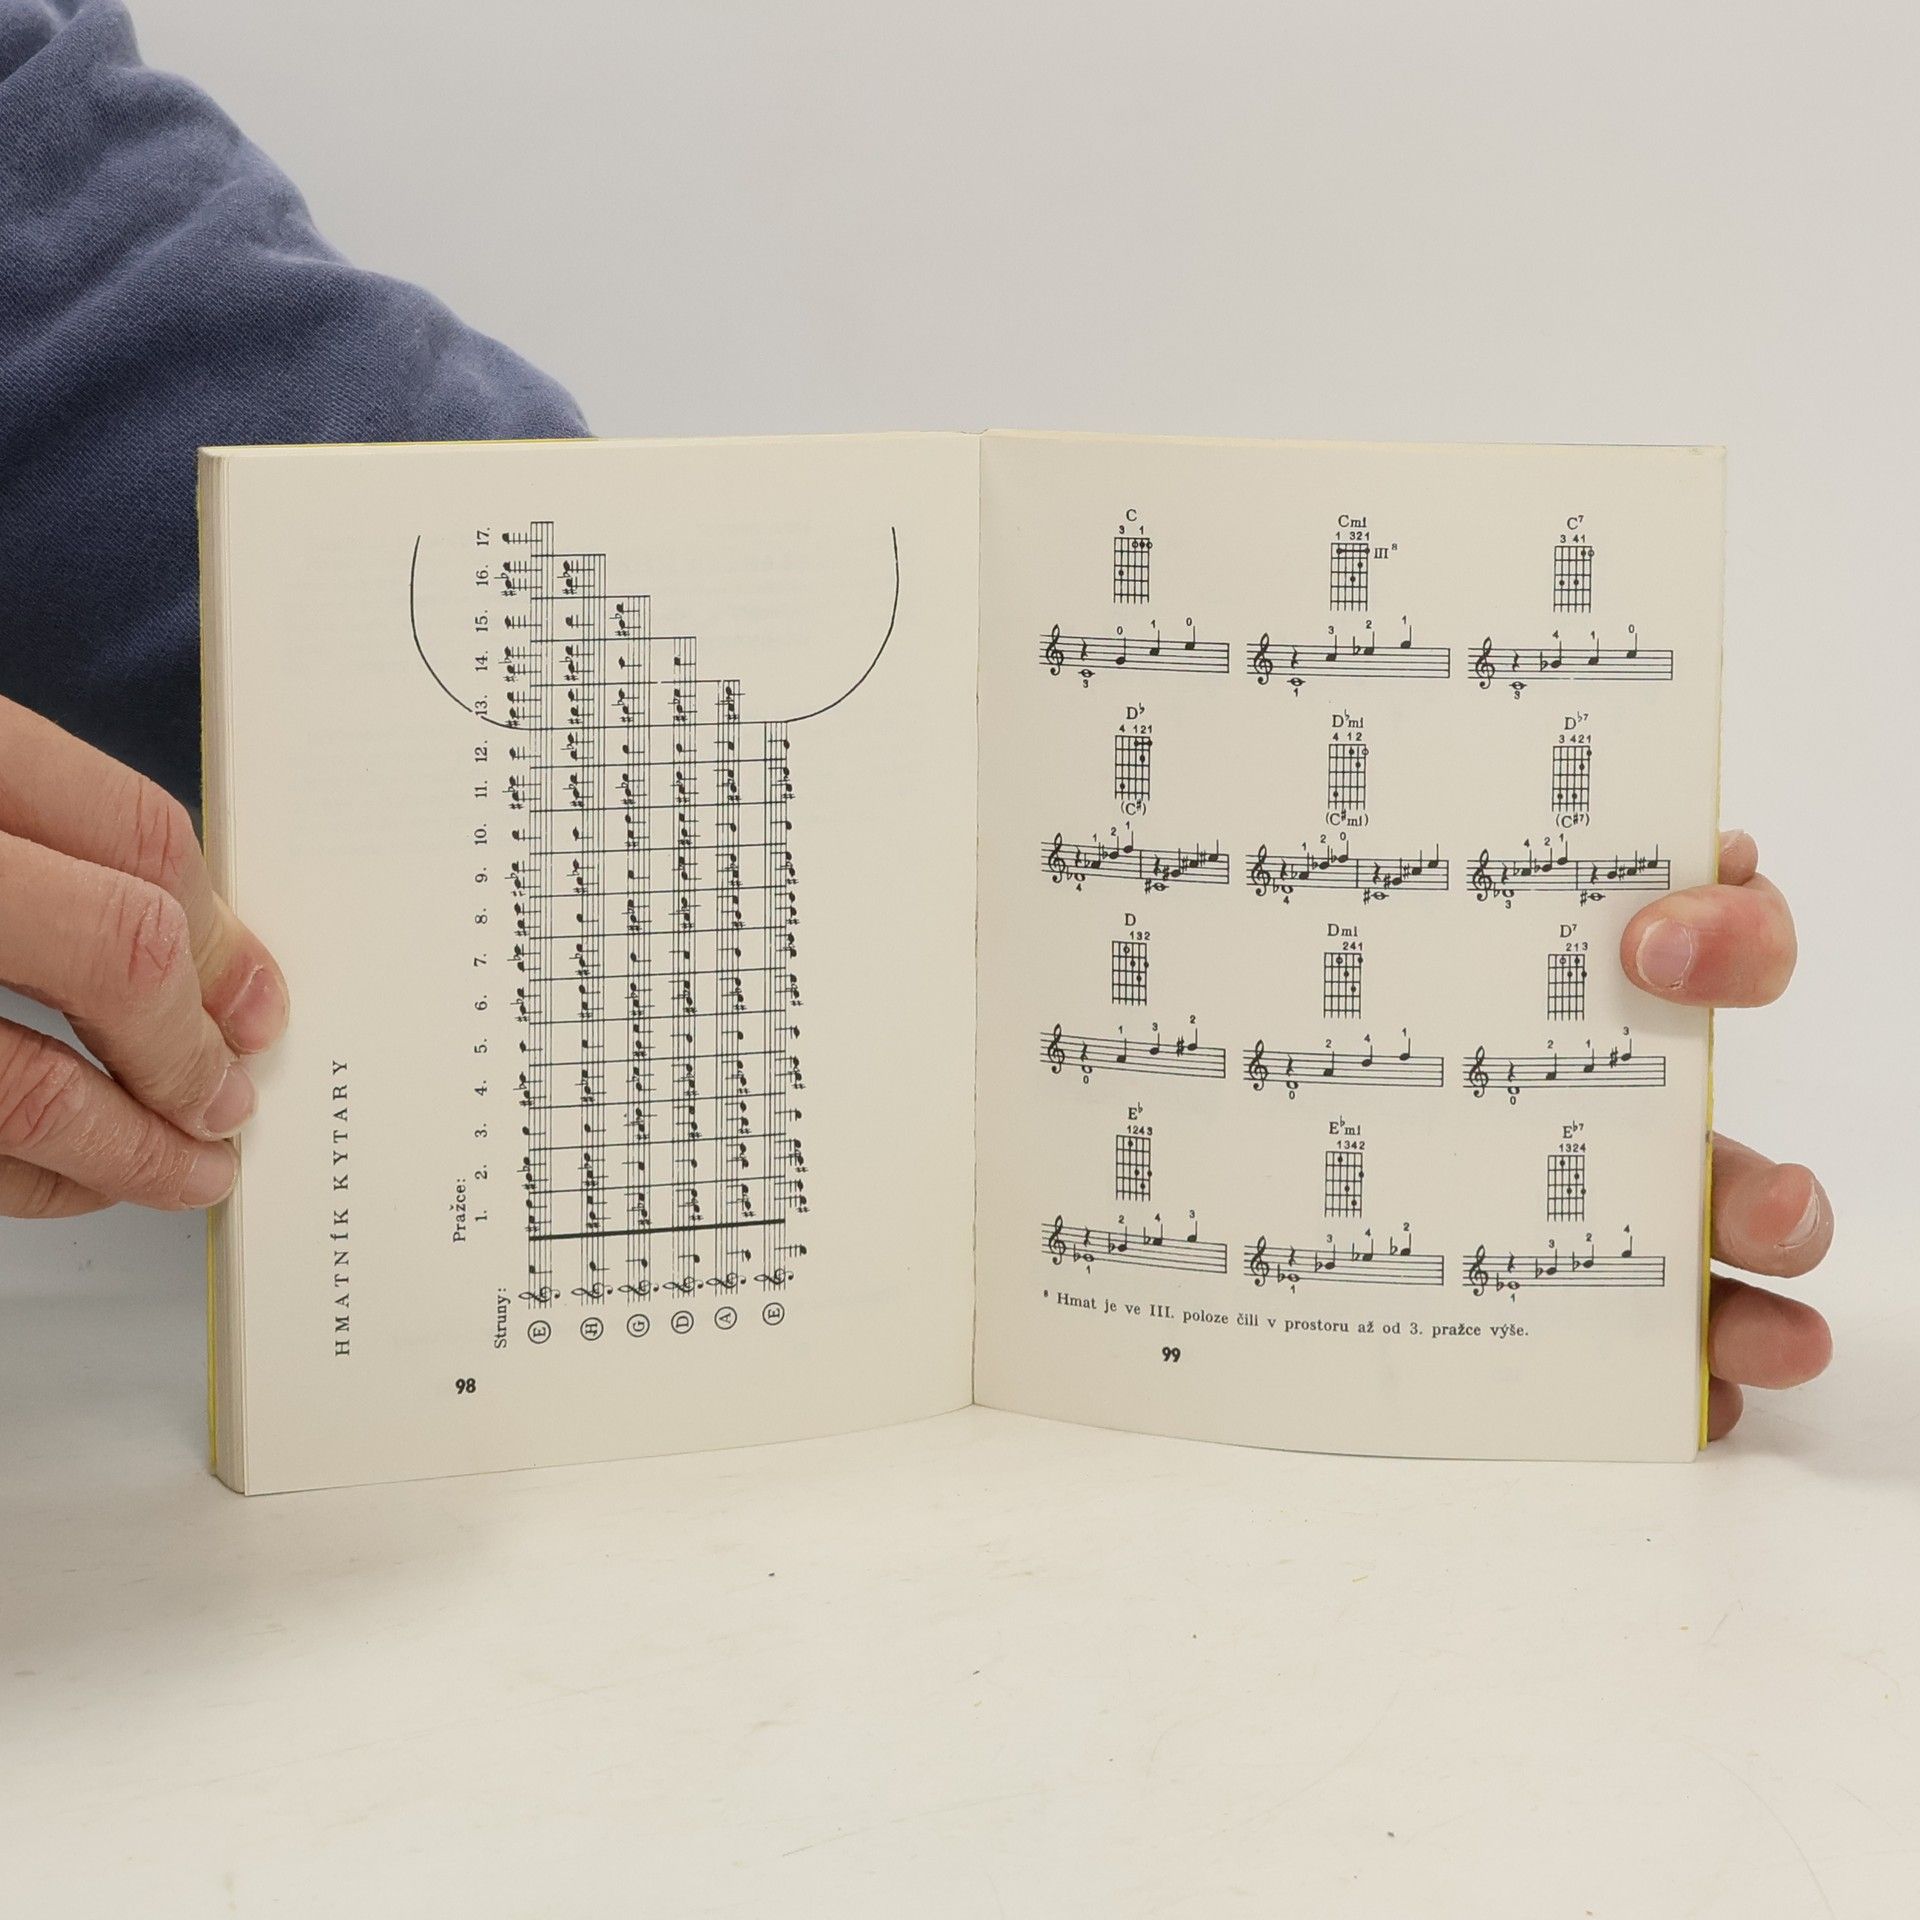 HMATNÍK KYTARY
Pražce:
1. 2. 3. 4. 5. 6. 7. 8. 9. 10. 11. 12. 13. 14. 15. 16. 17.
Struny:
E
H
G
D
A
E
98
C Cmi C7
3 1 1 321 3 41
III 8
0 1 0 3 2 1 4 1 0
3 1 3
D♭ D♭mi D♭7
4 121 4 12 3 421
(C♯) (C♯mi) (C♯7)
1 2 1 1 2 0 4 2 1
4 4 3
D Dmi D7
132 241 213
1 3 2 2 4 1 2 1 3
0 0 0
E♭ E♭mi E♭7
1243 1342 1324
2 4 3 3 4 2 3 2 4
1 1 1
8 Hmat je ve III. poloze čili v prostoru až od 3. pražce výše.
99